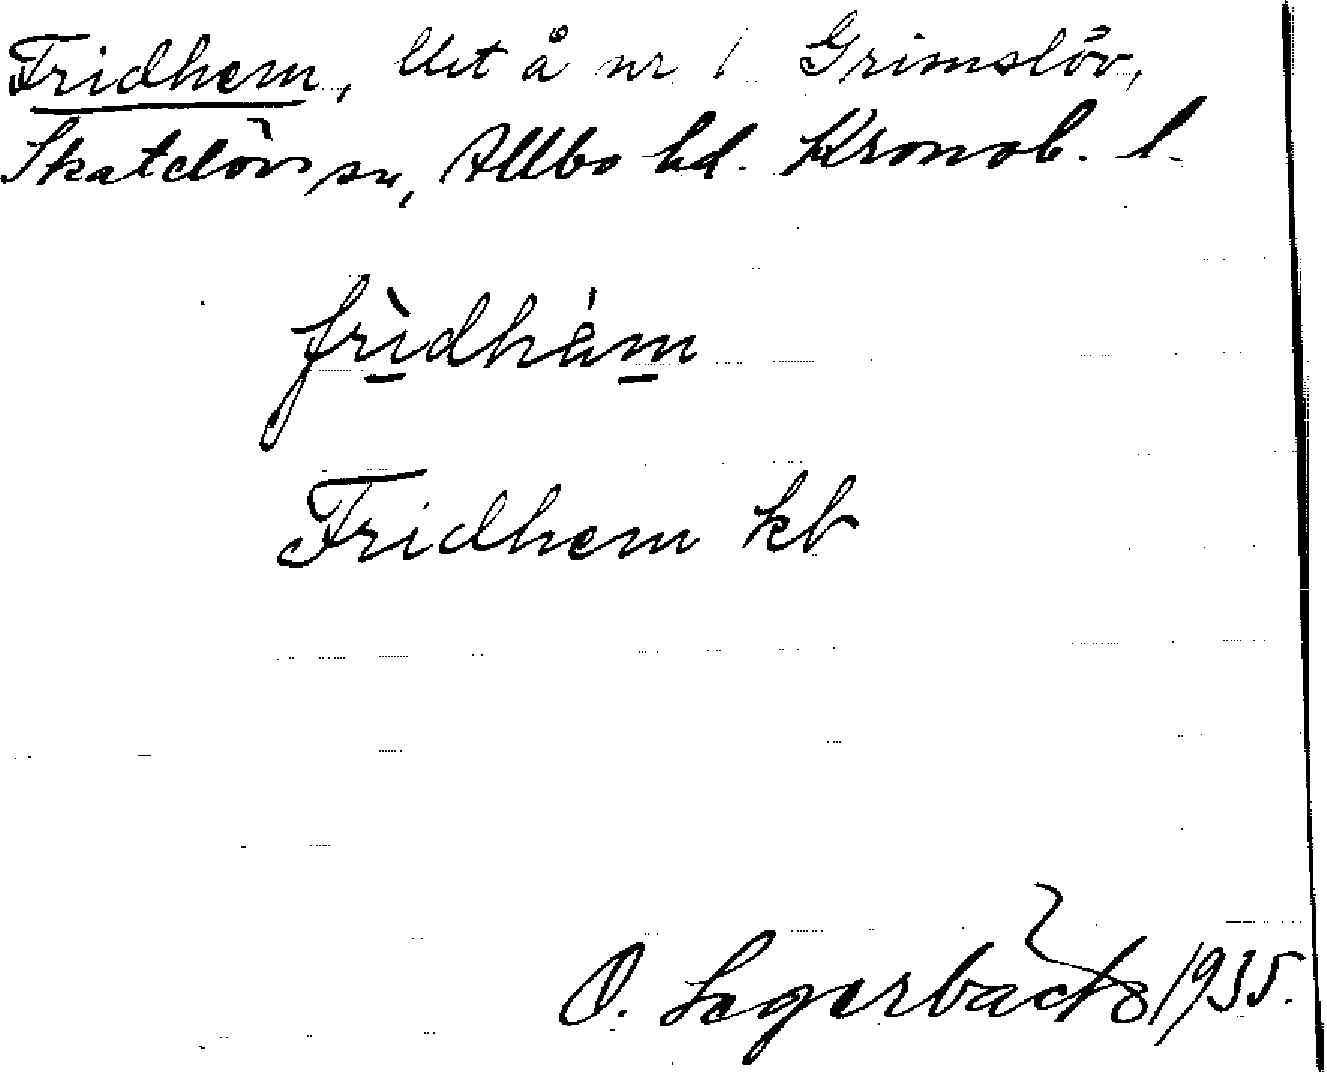 Fridhem, Utt å nr 1 Grimslöv,
Skatelövs sn, Allbo hd. Kronob. l.
frìdhä́m
Fridhem kb
O. Lagerbäck 1935.